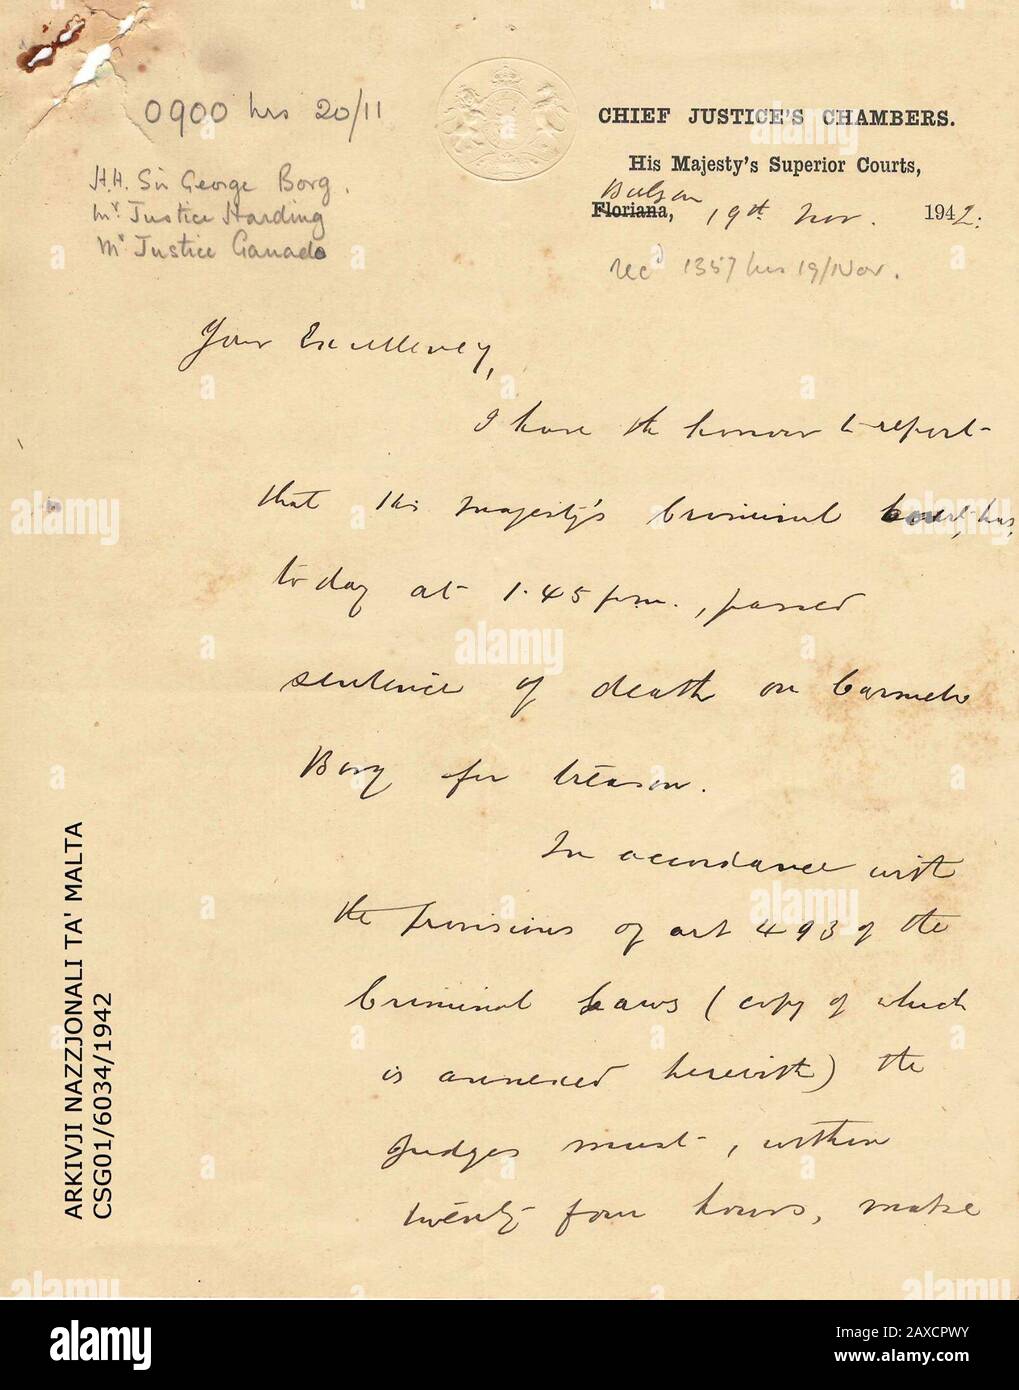 0900 hrs 20/11
H.H. Sir George Borg.
Mr Justice Harding
Mr Justice Ganado
CHIEF JUSTICE'S CHAMBERS.
His Majesty's Superior Courts,
Floriana, 19th Nov. 1942.
recd 1357 hrs 19/Nov.
Your Excellency,
I have the honour to report
that His Majesty's Criminal Court, has,
to day at 1.45 p.m., passed
sentence of death on Carmelo
Borg for treason.
In accordance with
the provisions of art 493 of the
Criminal Laws (copy of which
is annexed herewith) the
Judges must, within
twenty four hours, make
ARKIVJI NAZZJONALI TA' MALTA
CSG01/6034/1942
alamy
Image ID: 2AXCPWY
www.alamy.com